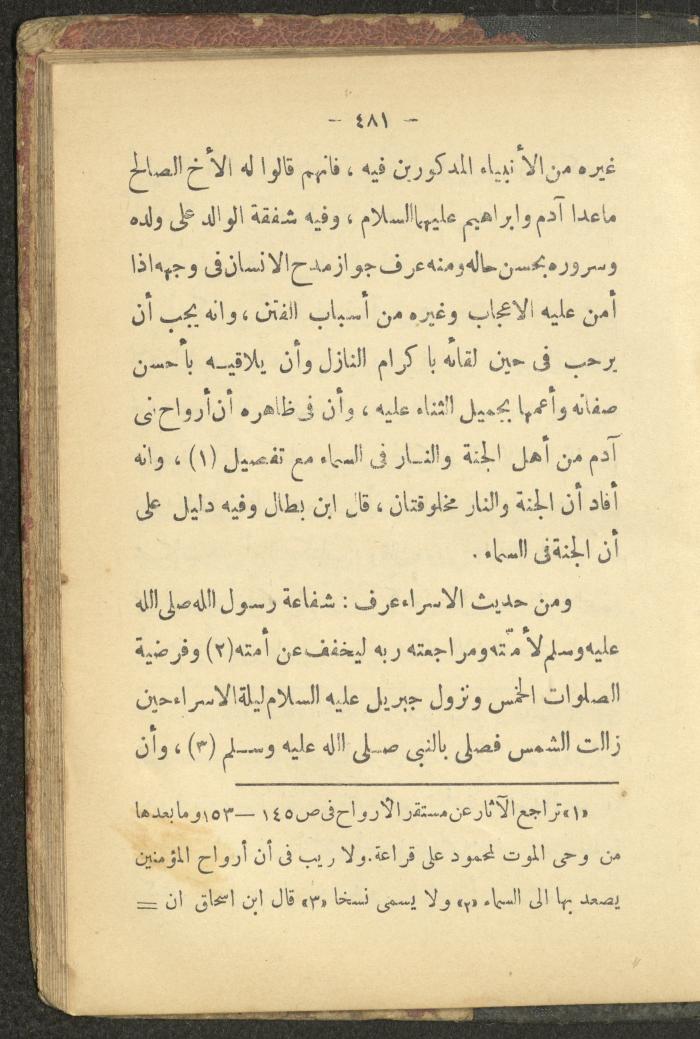 - ٤٨١ -
غيره من الأنبياء المذكورين فيه ، فانهم قالوا له الأخ الصالح
ماعدا آدم وابراهيم عليهما السلام ، وفيه شفقة الوالد على ولده
وسروره بحسن حاله ومنه عرف جواز مدح الانسان فى وجهه اذا
أمن عليه الاعجاب وغيره من أسباب الفتن ، وانه يجب أن
يرحب فى حين لقائه با كرام النازل وأن يلاقيه بأحسن
صفاته وأعمها بجميل الثناء عليه ، وأن فى ظاهره أن أرواح بنى
آدم من أهل الجنة والنار فى السماء مع تفصيل (١) ، وانه
أفاد أن الجنة والنار مخلوقتان ، قال ابن بطال وفيه دليل على
أن الجنة فى السماء .
ومن حديث الاسراء عرف : شفاعة رسول الله صلى الله
عليه وسلم لأمّته ومراجعته ربه ليخفف عن أمته (٢) وفرضية
الصلوات الخمس ونزول جبريل عليه السلام ليلة الاسراء حين
زالت الشمس فصلى بالنبى صلى الله عليه وسلم (٣) ، وأن
«١» تراجع الآثار عن مستقر الأرواح فى ص ١٤٥ – ١٥٣ وما بعدها
من وحى الموت لمحمود على قراعة . ولا ريب فى أن أرواح المؤمنين
يصعد بها الى السماء «٢» ولا يسمى نسخا «٣» قال ابن اسحاق ان =